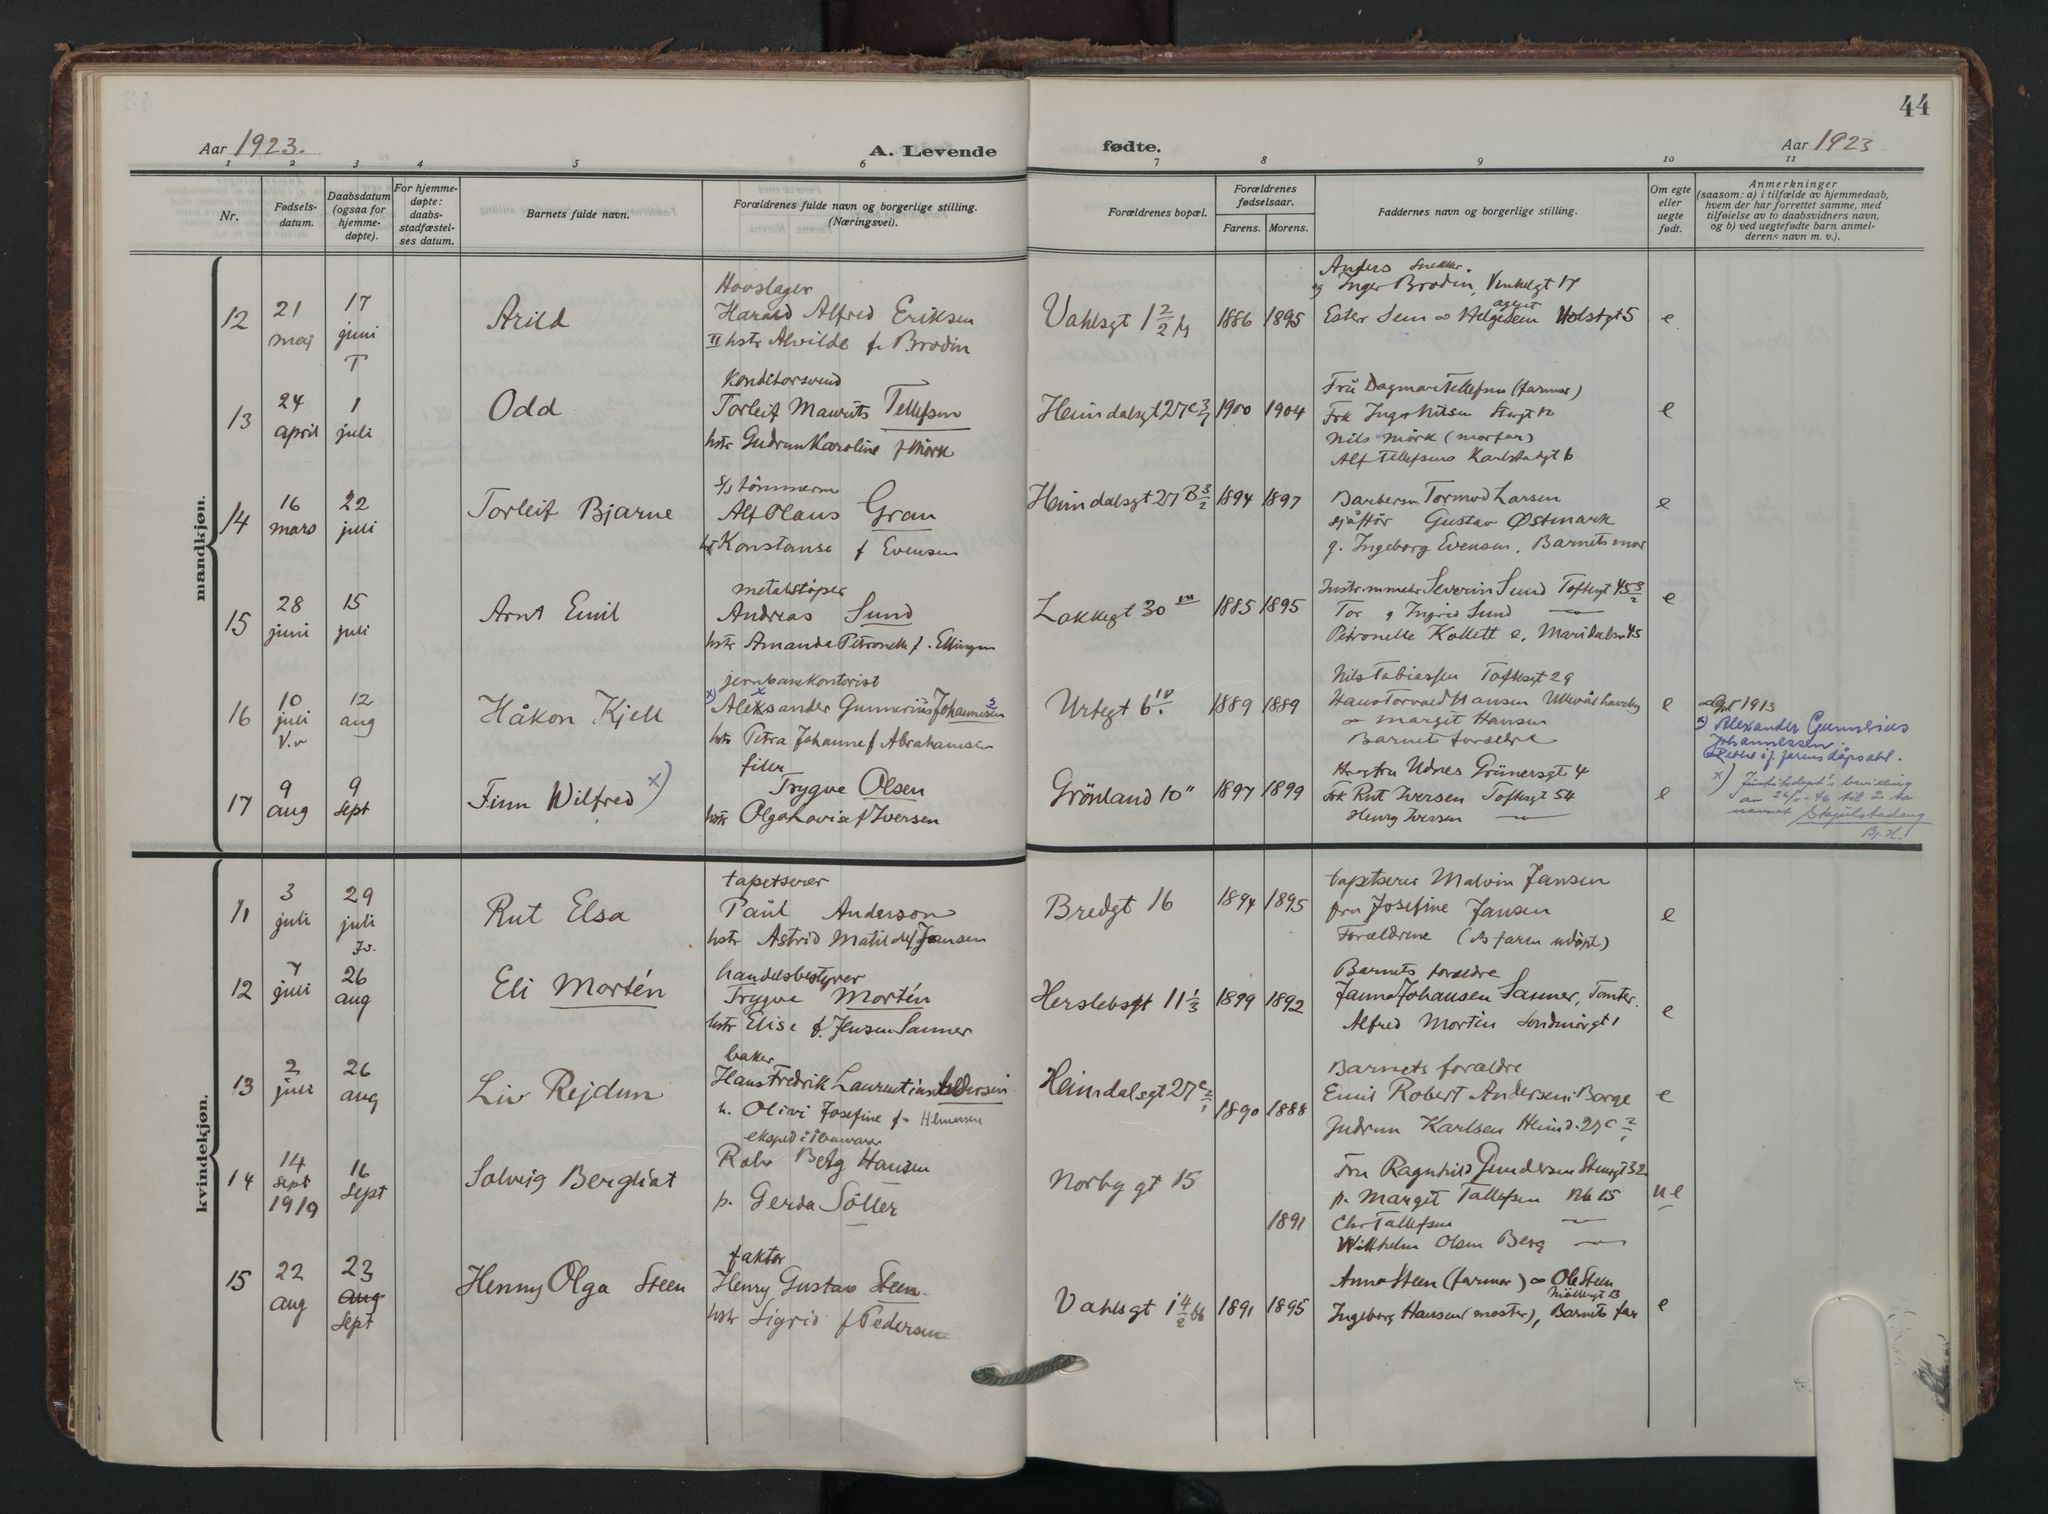 44
Aar 1923. A. Levende fødte. Aar 1923
1 2 3 4 5 6 7 8 9 10 11
Nr. Fødselsdatum. Daabsdatum (ogsaa for hjemmedøpte). For hjemmedøpte: daabsstadfæstelses datum. Barnets fulde navn. Forældrenes fulde navn og borgerlige stilling. (Næringsvei). Forældrenes bopæl. Forældrenes fødselsaar. Farens. Morens. Faddernes navn og borgerlige stilling. Om egte eller uegte født. Anmerkninger (saasom: a) i tilfælde av hjemmedaab, hvem der har forrettet samme, med tilføielse av to daabsvidners navn, og b) ved uegtefødte barn anmelderens navn m. v.).
mandkjøn.
Hovslager
12 21 maj 17 juni T Arild Harald Alfred Eriksen
hstr Alvilde f. Brodin
Vahlsgt 1 2/2 1886 1895
Anders Snekker.
og Inger Brodin, Vinkelgt 17
Ester Sem agent Helgesem 5 e
Konditorsvend
13 24 april 1 juli Odd Torleif Maurits Tellefsen
hstr Gudrun Karoline f Mörk
Heimdalsgt 27c 3/1 1900 1904
Fru Dagmar Tellefsen (farmor)
Frk Inga Nilsen
Nils Mörk (morfar)
Alf Tellefsens Karlstadgt 6 e
tömmerm
14 16 mars 22 juli Torleif Bjarne Alf Olaus Gran
hst Konstanse f Evensen
Heimdalsgt 27 B 3/2 1894 1897
Barbersv Tormod Larsen
sjåffør Gustav Østmark
g. Ingeborg Evensen, Barnets mor e
metalstöper
15 28 juni 15 juli Arnt Emil Andreas Sund
hstr Amanda Petronelle f. Ellingen
Lakkegt 30 1885 1895
Severin Sund Toftesgt 45 3/2
Tor g Ingrid Sund
Petronelle Kollett e, Maridalsv 45 e
jernbanekontorist
16 10 juli V.v 12 aug Håkon Kjell x) Aleksander Gunnerius Johannesen
hstr Petra Johanne f Abrahamsen
Urtegt 6 IV 1889 1889
Nils Tobiassen Toftesgt 29
Hans Torvald Hansen
∞ Margit Hansen
Barnets forældre e
1913
x) Alexander Gunnerius
Johannessen.
Rettet i f. farens dåpsatt.
filer
17 9 aug 9 sept Finn Wilfred x) Trygve Olsen
hstr Olga Lovise f Iversen
Grönland 10" 1897 1899
Udnes Grünersgt 4
Frk Rut Iversen Toftesgt 54
Henry Iversen e
x) Justitsdept's bevilling
av 26/ - 46 til å ta
navnet Skjulstadeng
Bj. H.
kvindekjøn.
tapetserer
11 3 juli 29 juli Rut Elsa Paul Anderson
hstr Astrid Matilde f Jansen
Bredgt 16 1894 1895
tapetserer Malvin Jansen
fru Josefine Jansen
Forældrene (faren udöpt) e
handelsbestyrer
12 7 juli 26 aug Eli Mortén Trygve Mortén
hstr Elise f. Jensen Sanner
Herslebsgt 11 1/3 1899 1892
Barnets forældre
Janna Johansen Sanner, Tomter.
Alfred Mortén Sondmörgt 1 e
baker
13 2 juli 26 aug Liv Rejdun Hans Fredrik Laurentius Andersen
h. Olivi Josefine f. Helmersen
Heimdalsgt 27c 2/1 1890 1888
Barnets forældre
Emil Robert Andersen: Borge
Gudrun Karlsen Heimd. 27c 2/1 e
eksped i
14 14 sept 1919 16 sept Solveig Bergliot Rolv Berg Hansen
p. Gerda Sötter
Norbygt 15 1891
Fru Ragnhild Gundersen Stensgt 32
p. Margit Tallefsen Nb 15
Chr Tallefsen
Willhelm Olsen Berg u e
faktor
15 22 aug 23 aug sept Henny Olga Steen Henry Gustav Steen
hstr Sigrid f Pedersen
Vahlsgt 1 4/2 1891 1895
Anna Steen (farmor) ∞ Ole Steen
Möllergt 13
Ingeborg Hansen (moster), Barnets far e